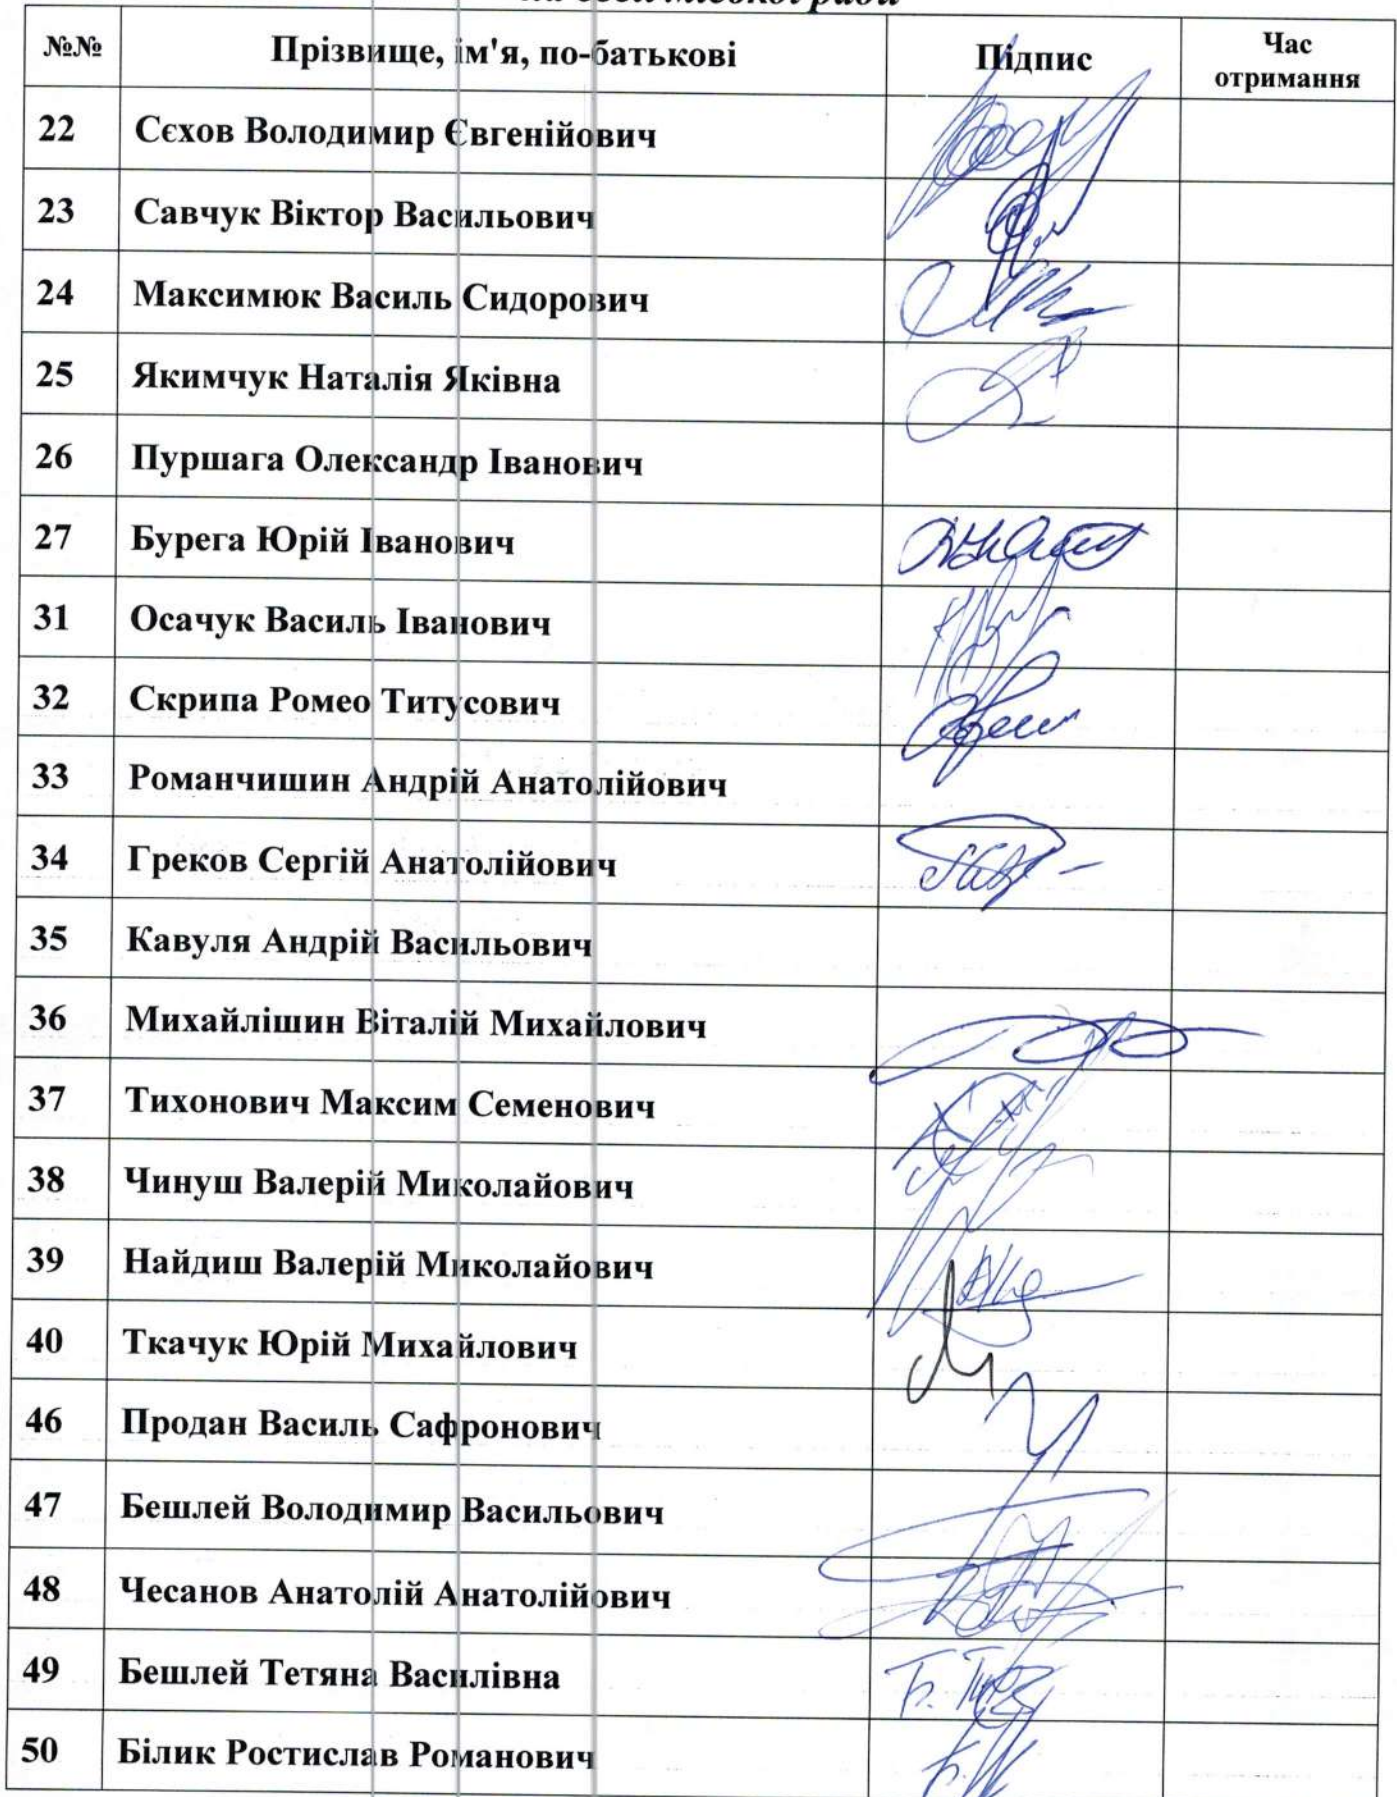 міської ради
№№ Прізвище, ім'я, по-батькові Підпис Час отримання
22 Сєхов Володимир Євгенійович
23 Савчук Віктор Васильович
24 Максимюк Василь Сидорович
25 Якимчук Наталія Яківна
26 Пуршага Олександр Іванович
27 Бурега Юрій Іванович
31 Осачук Василь Іванович
32 Скрипа Ромео Титусович
33 Романчишин Андрій Анатолійович
34 Греков Сергій Анатолійович
35 Кавуля Андрій Васильович
36 Михайлішин Віталій Михайлович
37 Тихонович Максим Семенович
38 Чинуш Валерій Миколайович
39 Найдиш Валерій Миколайович
40 Ткачук Юрій Михайлович
46 Продан Василь Сафронович
47 Бешлей Володимир Васильович
48 Чесанов Анатолій Анатолійович
49 Бешлей Тетяна Василівна
50 Білик Ростислав Романович